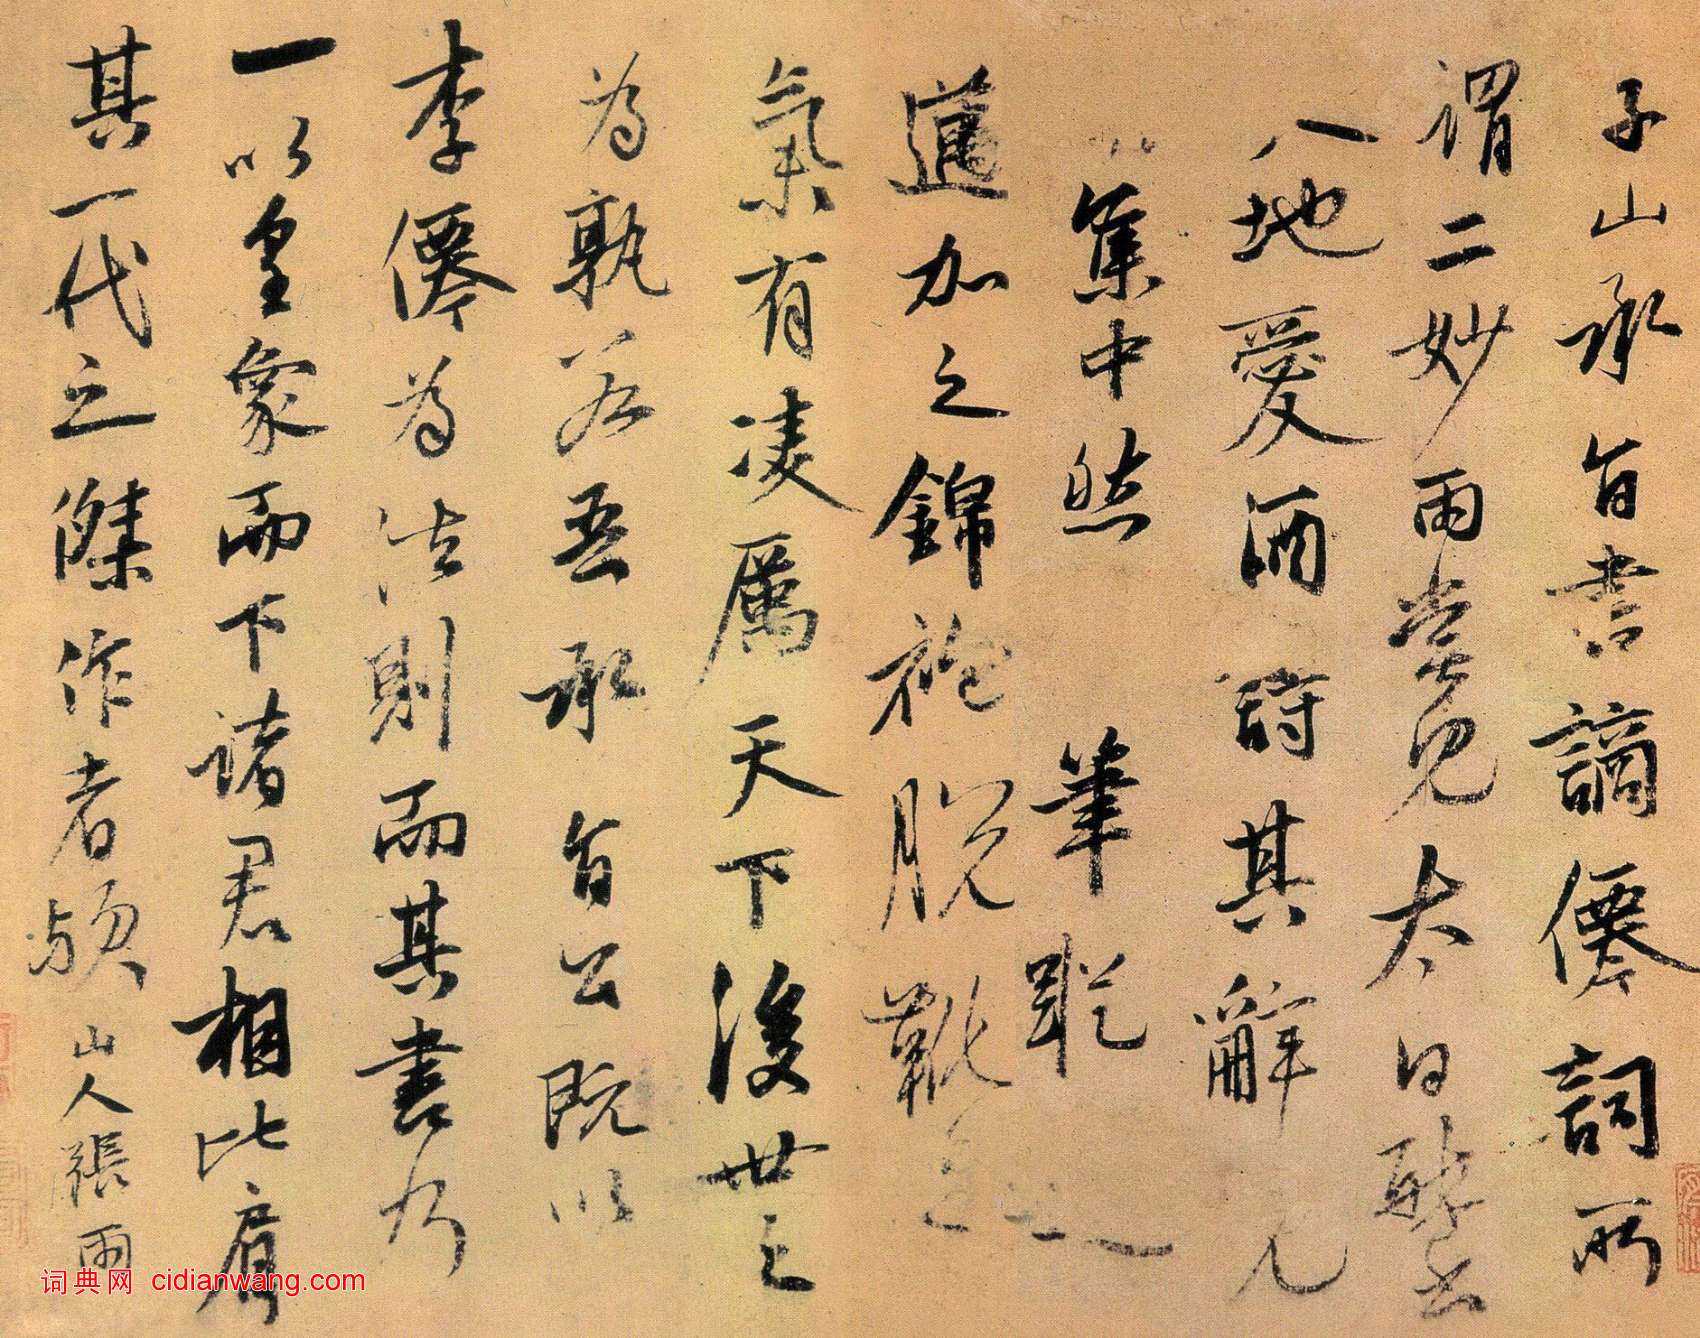 子山承旨書謫僊詞所
謂二妙兩當見太白醉書
八地愛酒詩其辭見
集中然筆蹤
遒加之錦袍脫靴之
氣有凌厲天下後世之
為孰若吾承旨公既以
李僊為法則而其書乃
一以皇象而下諸君相比肩
其一代之傑作者歟
山人張雨
词典网 cidianwang.com